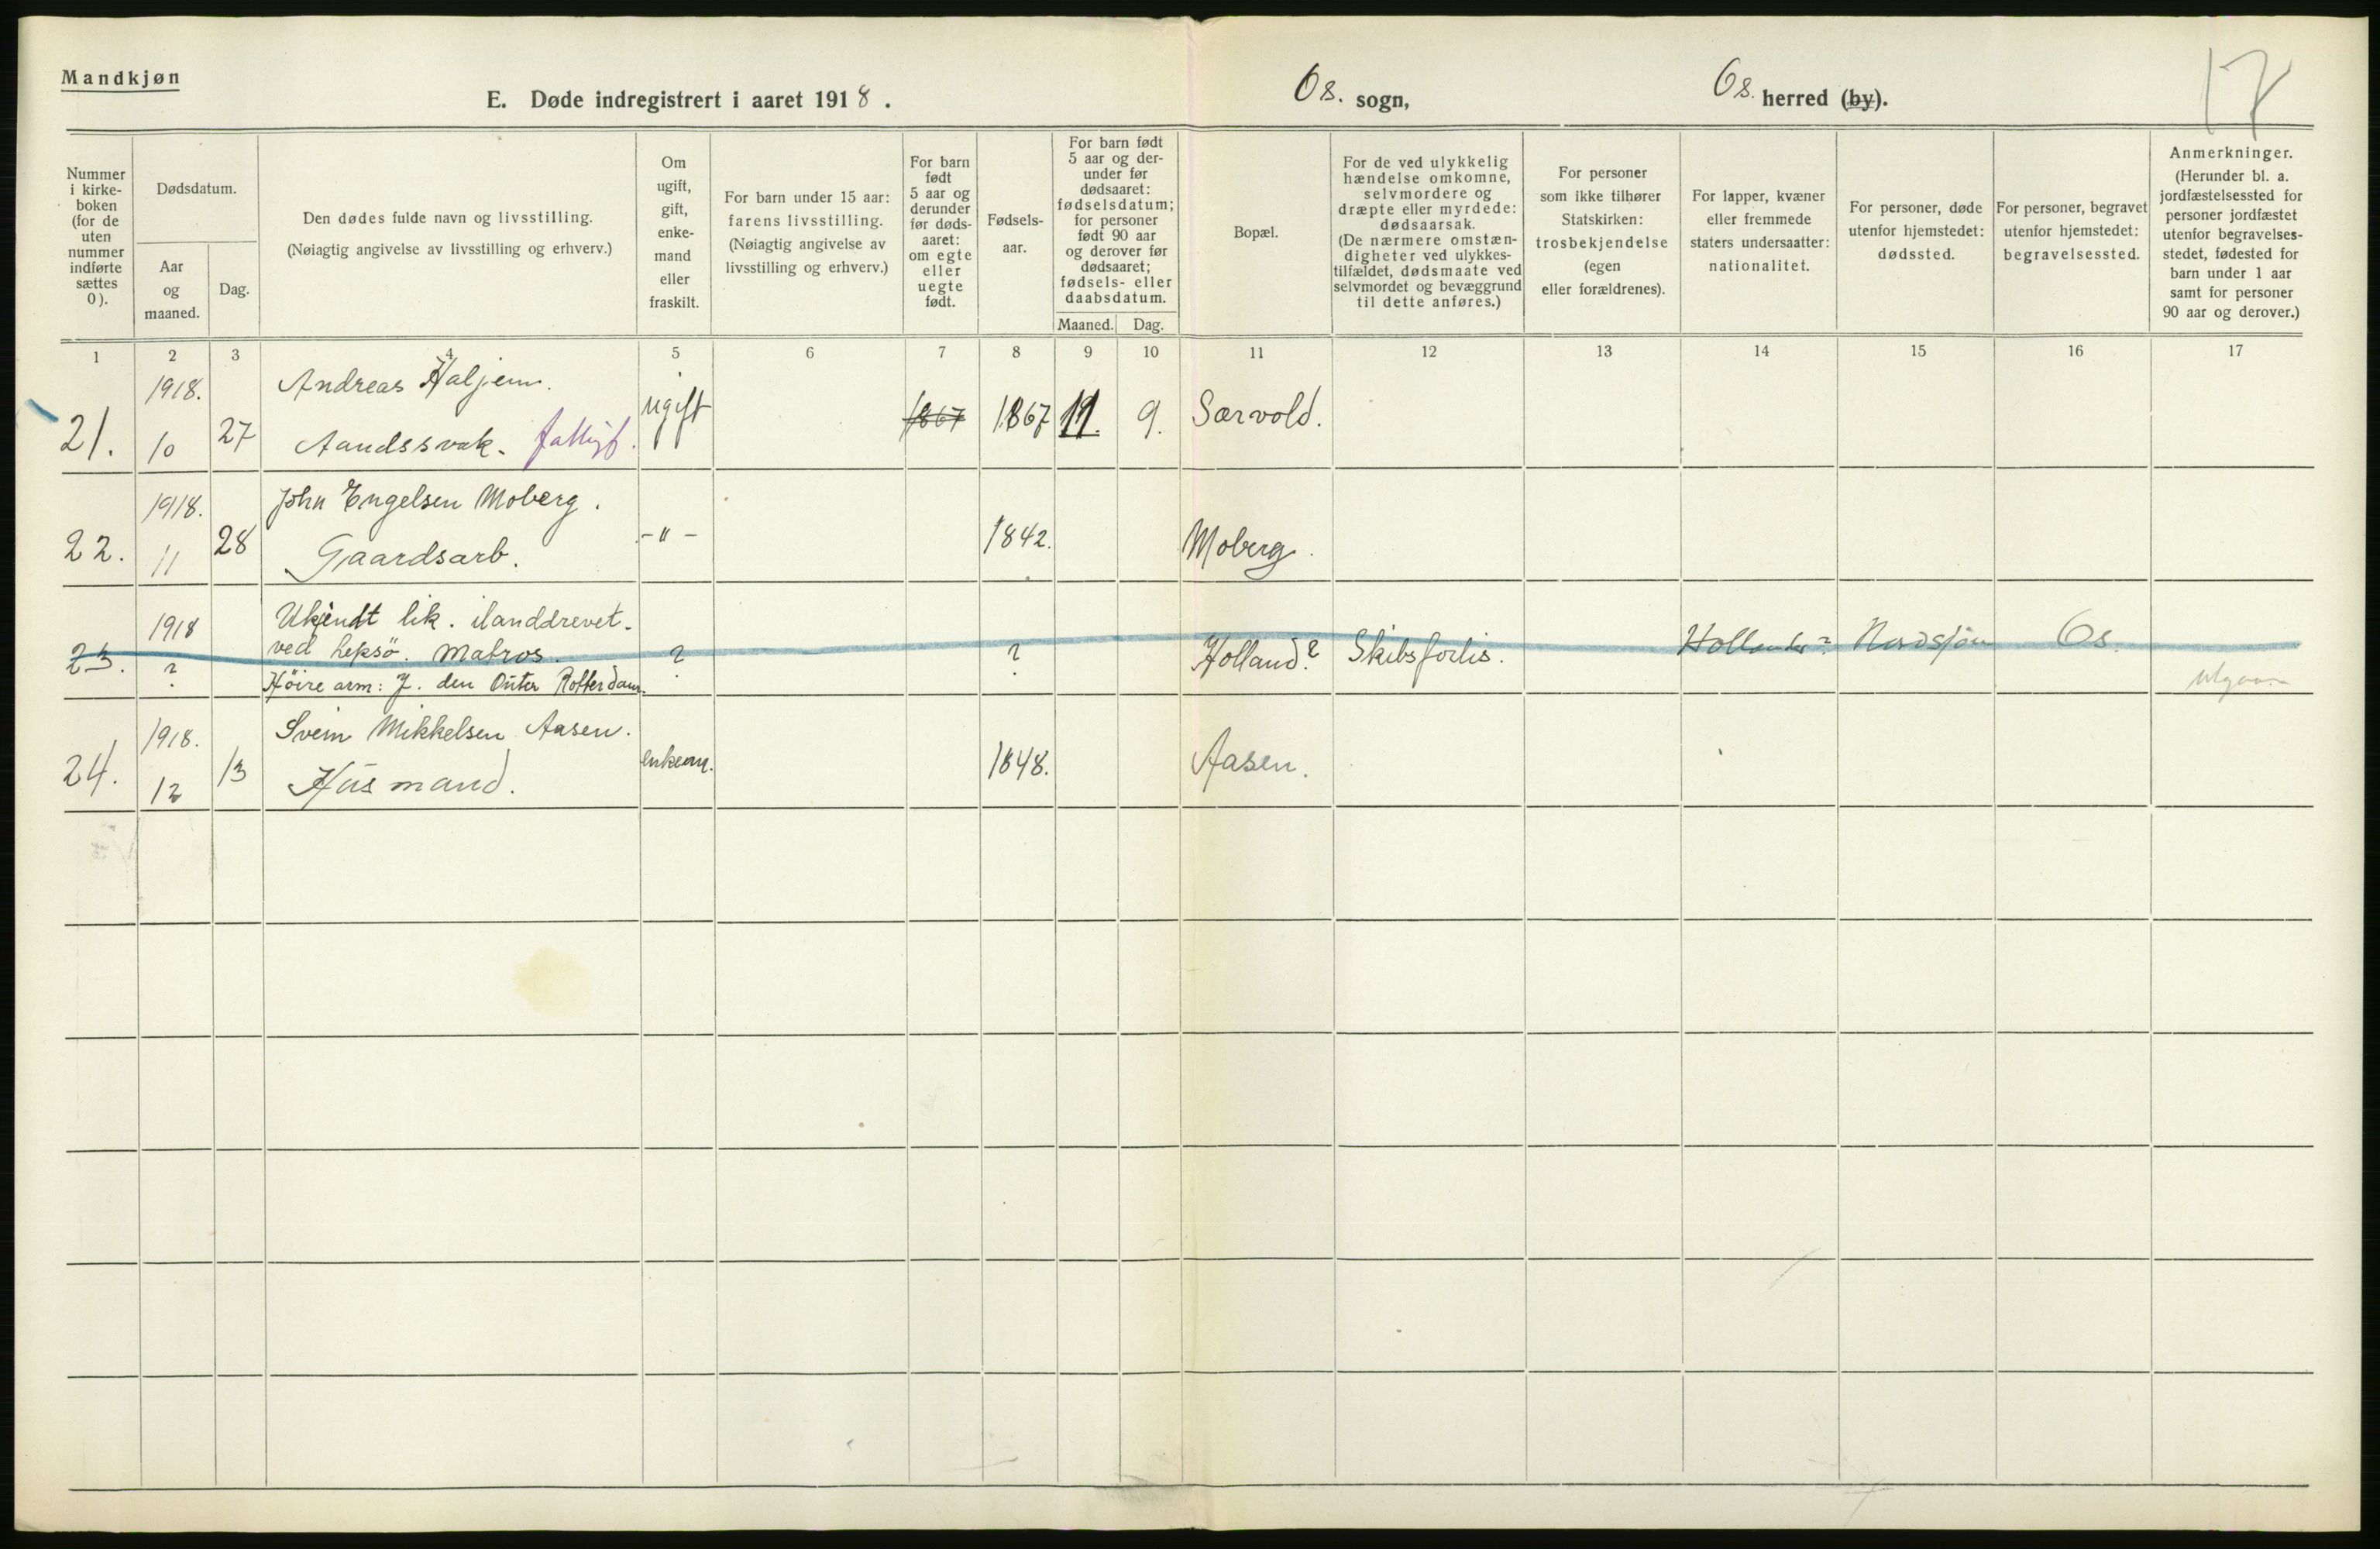 Mandkjøn
E. Døde indregistrert i aaret 1918.
Os. sogn,
Os. herred (by).
17
Nummer
i kirke-
boken
(for de
uten
nummer
indførte
sættes
0).
Dødsdatum.
Aar
og
maaned.
Dag.
Den dødes fulde navn og livsstilling.
(Nøiagtig angivelse av livsstilling og erhverv.)
Om
ugift,
gift,
enke-
mand
eller
fraskilt.
For barn under 15 aar:
farens livsstilling.
(Nøiagtig angivelse av
livsstilling og erhverv.)
For barn
født
5 aar og
derunder
før døds-
aaret:
om egte
eller
uegte
født.
Fødsels-
aar.
For barn født
5 aar og der-
under før
dødsaaret:
fødselsdatum;
for personer
født 90 aar
og derover før
dødsaaret;
fødsels- eller
daabsdatum.
Maaned. Dag.
Bopæl.
For de ved ulykkelig
hændelse omkomne,
selvmordere og
dræpte eller myrdede:
dødsaarsak.
(De nærmere omstæn-
digheter ved ulykkes-
tilfældet, dødsmaate ved
selvmordet og bevæggrund
til dette anføres.)
For personer
som ikke tilhører
Statskirken:
trosbekjendelse
(egen
eller forældrenes).
For lapper, kvæner
eller fremmede
staters undersaatter:
nationalitet.
For personer, døde
utenfor hjemstedet:
dødssted.
For personer, begravet
utenfor hjemstedet:
begravelsessted.
Anmerkninger.
(Herunder bl. a.
jordfæstelsessted for
personer jordfæstet
utenfor begravelses-
stedet, fødested for
barn under 1 aar
samt for personer
90 aar og derover.)
1 2 3 4 5 6 7 8 9 10 11 12 13 14 15 16 17
1918. Andreas Haljem.
21. 10 27 Aandssvak. fattigf. ugift 1867 1867 11. 9. Sørvold.
1918. John Engelsen Moberg.
22. 11 28 Gaardsarb. -"- 1842. Moberg.
1918 Ukjendt lik. ilanddrevet
23. ? ved Lepsö. Matros. ? ? Holland? Skibsforlis. Hollender? Nordsjøen Os.
Höire arm: J. den Outer Rotterdam. Utgaar
1918. Svein Mikkelsen Aasen.
24. 12 13 Husmand. enkem. 1848. Aasen.